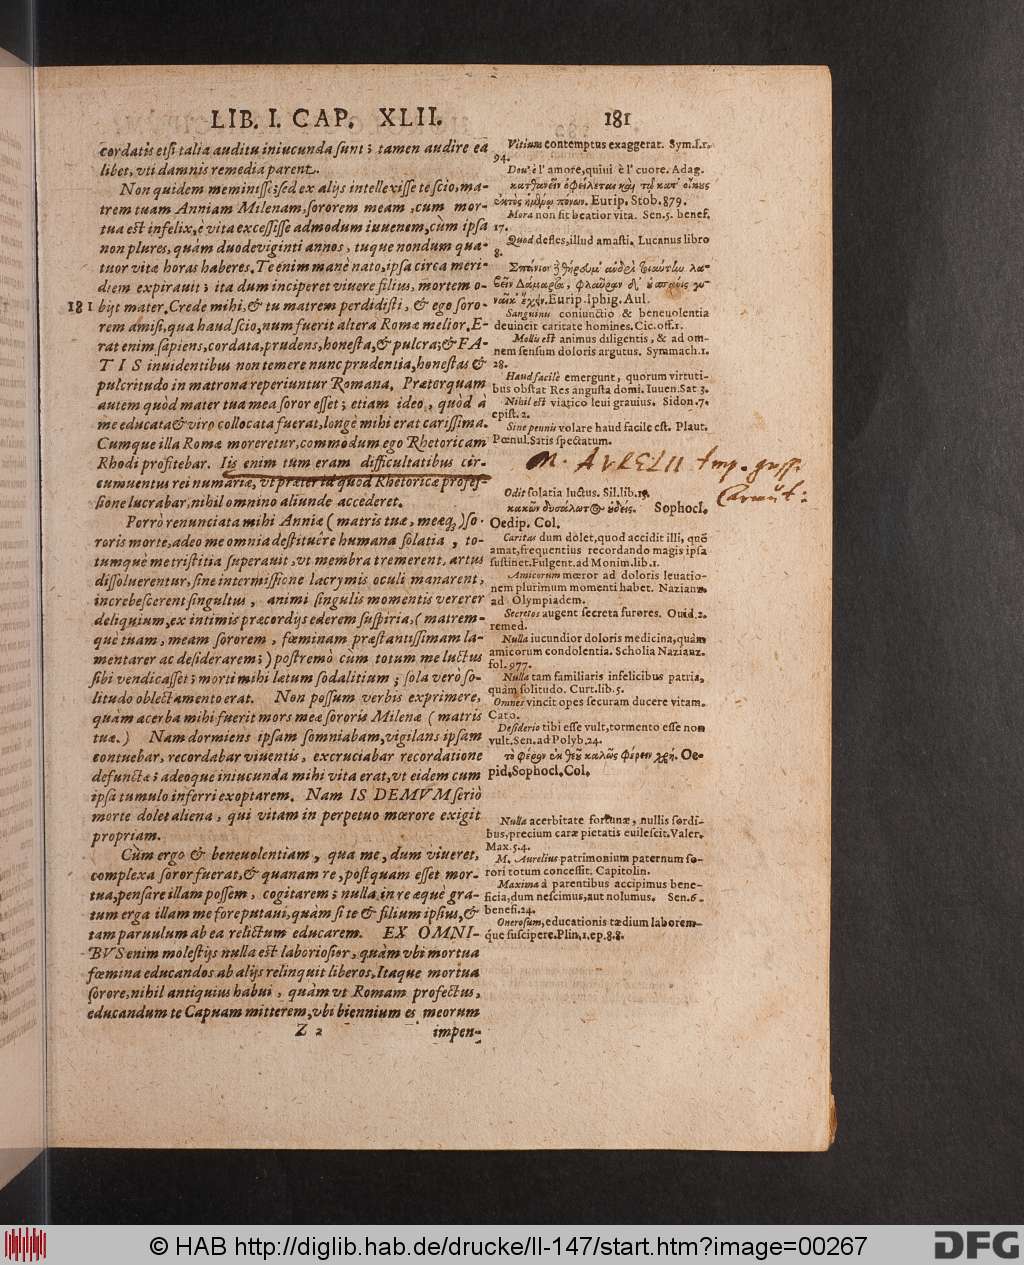 LIB. I. CAP. XLII. 181
cordatis etsi talia auditu iniucunda sunt; tamen audire ea
libet, vti damnis remedia parent.
Non quidem meminisse; sed ex alijs intellexisse te scio, ma-
trem tuam Anniam Milenam, sororem meam, cum mor-
tua est infelix, è vita excessisse admodum iuuenem, cùm ipsa
non plures, quàm duodeviginti annos, tuque nondum qua-
tuor vitæ horas haberes. Te enim manè nato, ipsa circa meri-
diem expirauit; ita dum inciperet viuere filius, mortem o-
181 bijt mater. Crede mihi, & tu matrem perdidisti, & ego soro-
rem amisi, qua haud scio, num fuerit altera Romæ melior. E-
rat enim sapiens, cordata, prudens, honesta, & pulcra; & FA-
TIS inuidentibus non temere nunc prudentia, honestas &
pulcritudo in matrona reperiuntur Romana. Prætorquam
autem quòd mater tua mea soror esset; etiam ideo, quòd à
me educata & viro collocata fuerat, longè mihi erat carissima.
Cumque illa Romæ moreretur, commodum ego Rhetoricam
Rhodi profitebar. Iis enim tum eram difficultatibus cir-
cumuentus rei numariæ, vt præter id quod Rhetoricæ profes-
sione lucrabar, nihil omnino aliunde accederet.
Porrò renunciata mihi Anniæ (matris tuæ, meæq;) so-
roris morte, adeo me omnia destituere humana solatia, to-
tumque me tristitia superauit, vt membra tremerent, artus
dissoluerentur, sine intermissione lacrymis oculi manarent,
increbescerent singultus, animi singulis momentis vererer
deliquium, ex intimis præcordijs ederem suspiria, (matrem-
què tuam, meam sororem, fœminam præstantissimam la-
mentarer ac desiderarem;) postremò cum totum me luctus
sibi vendicasset; morti mihi letum sodalitium; sola verò so-
litudo oblectamento erat. Non possum verbis exprimere,
quàm acerba mihi fuerit mors meæ sororis Milenæ (matris
tuæ.) Nam dormiens ipsam somniabam, vigilans ipsam
contuebar, recordabar viuentis, excruciabar recordatione
defunctæ; adeoque iniucunda mihi vita erat, vt eidem cum
ipsa tumulo inferri exoptarem. Nam IS DEMVM seriò
morte dolet aliena, qui vitam in perpetuo mœrore exigit
propriam.
Cùm ergo & beneuolentiam, qua me, dum viueret,
complexa soror fuerat, & quanam re, postquam esset mor-
tua, pensare illam possem, cogitarem; nulla in re æquè gra-
tum erga illam me fore putaui, quàm si te & filium ipsius, &
tam paruulum ab ea relictum educarem. EX OMNI-
BVS enim molestijs nulla est laboriosior, quàm vbi mortua
fœmina educandos ab alijs relinquit liberos, Itaque mortua
sorore, nihil antiquius habui, quàm vt Romam profectus,
educandum te Capuam mitterem, vbi biennium es meorum
Z 2 impen-
Vitium contemptus exaggerat. Sym. l. 1.
94.
Dou'è l'amore, quiui è l'cuore. Adag.
Eurip. Stob. 879.
Mora non fit beatior vita. Sen. 5. benef.
17.
Quod defles, illud amasti. Lucanus libro
8.
Eurip. Iphig. Aul.
Sanguinis coniunctio & beneuolentia
deuincit caritate homines. Cic. off. 1.
Mollis est animus diligentis, & ad om-
nem sensum doloris argutus. Symmach. 1.
28.
Haud facilè emergunt, quorum virtuti-
bus obstat Res angusta domi. Iuuen. Sat 3.
Nihil est viatico leui grauius. Sidon. 7.
epist. 2.
Sine pennis volare haud facile est. Plaut.
Pœnul. Satis spectatum.
M. AVRELII Imp.
Odit solatia luctus. Sil. lib. 15.
Sophocl.
Oedip. Col.
Caritas dum dolet, quod accidit illi, quē
amat, frequentius recordando magis ipsa
sustinet. Fulgent. ad Monim. lib. 1.
Amicorum mœror ad doloris leuatio-
nem plurimum momenti habet. Nazianz.
ad Olympiadem.
Secretos augent secreta furores. Ouid. 2.
remed.
Nulla iucundior doloris medicina, quàm
amicorum condolentia. Scholia Nazianz.
fol. 977.
Nulla tam familiaris infelicibus patria,
quàm solitudo. Curt. lib. 5.
Omnes vincit opes securam ducere vitam.
Cato.
Desiderio tibi esse vult, tormento esse non
vult. Sen. ad Polyb. 24.
φέρειν χρή. Oe-
pid. Sophocl. Col.
Nulla acerbitate fortunæ, nullis sordi-
bus, precium caræ pietatis euilescit. Valer.
Max. 5. 4.
M. Aurelius patrimonium paternum so-
rori totum concessit. Capitolin.
Maxima à parentibus accipimus bene-
ficia, dum nescimus, aut nolumus. Sen. 6.
benefi. 24.
Onerosum, educationis tædium laborem-
que suscipere. Plin. 1. ep. 8. 8.
© HAB http://diglib.hab.de/drucke/ll-147/start.htm?image=00267
DFG